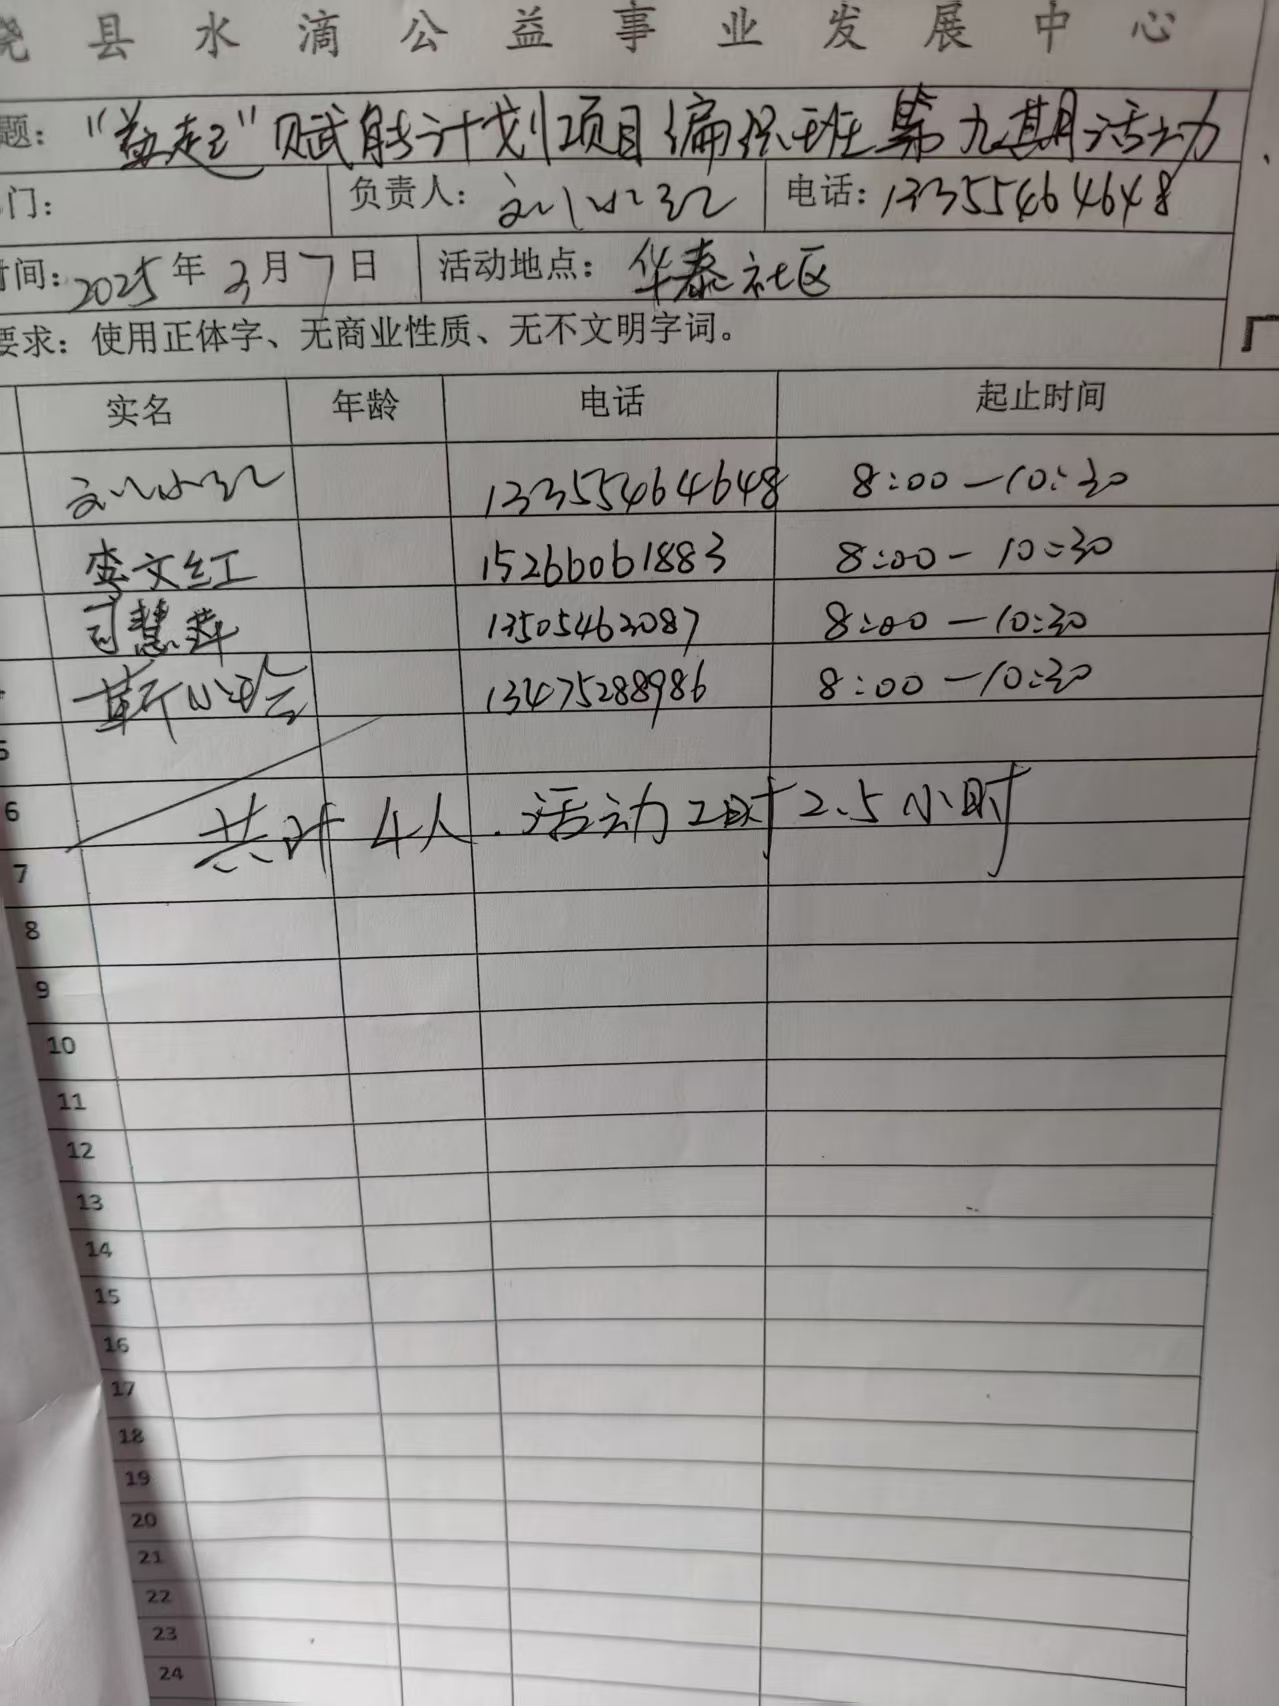 县水滴公益事业发展中心
题："益起"赋能计划项目编织班第九期活动
门： 负责人：刘小红 电话：13355464648
时间：2025年3月7日 活动地点：华泰社区
要求：使用正体字、无商业性质、无不文明字词。
实名 年龄 电话 起止时间
刘小红 13355464648 8:00—10:30
李文红 15266061883 8:00—10:30
司慧 13505463087 8:00—10:30
靳小玲 13475288986 8:00—10:30
5
6
共计4人.活动工时2.5小时
7
8
9
10
11
12
13
14
15
16
17
18
19
20
21
22
23
24